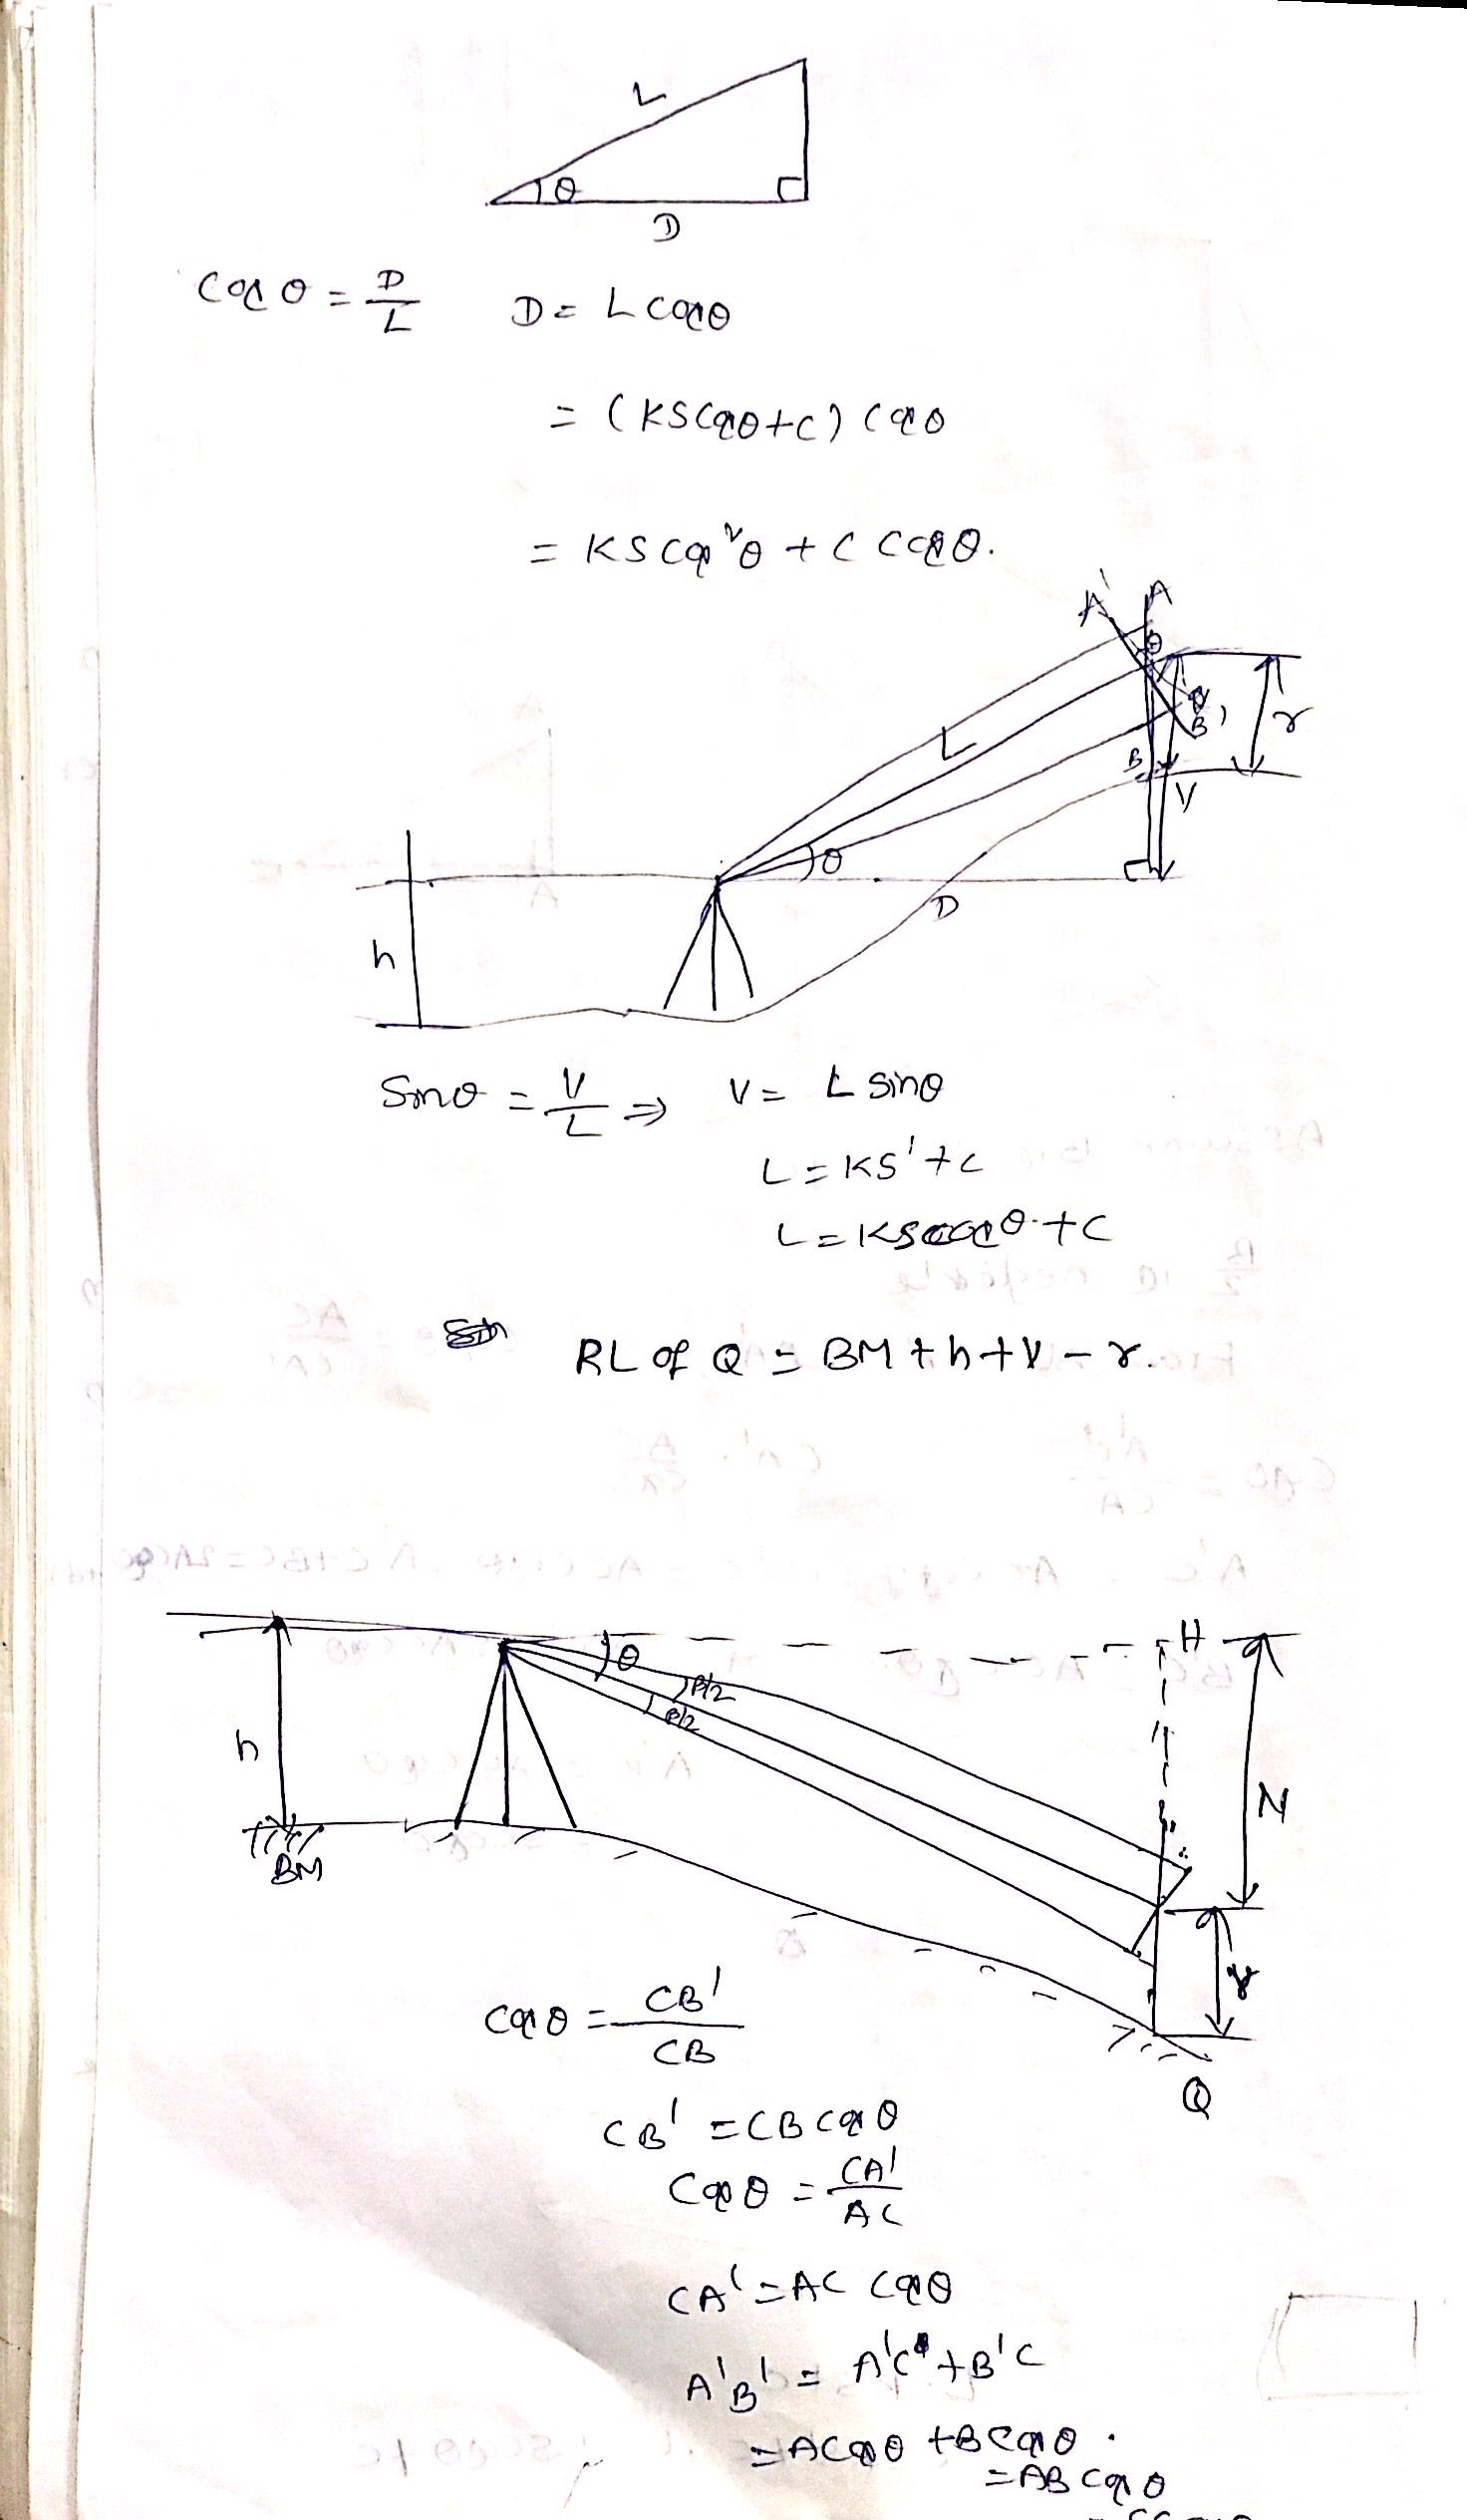 L
θ
D
Cos θ = D/L   D = L cosθ
= (KS cosθ + C) cosθ
= KS cos²θ + C cosθ.
A' A
θ
L
B'
r
B
V
θ
D
h
Sinθ = V/L ⇒ V = L sinθ
L = KS' + C
L = KS cosθ + C
RL of Q = BM + h + V - r.
H
θ
β/2
β/2
h
BM
r
Q
Cosθ = CB'/CB
CB' = CB cosθ
Cosθ = CA'/AC
CA' = AC cosθ
A'B' = A'C + B'C
= AC cosθ + B cosθ.
= AB cosθ